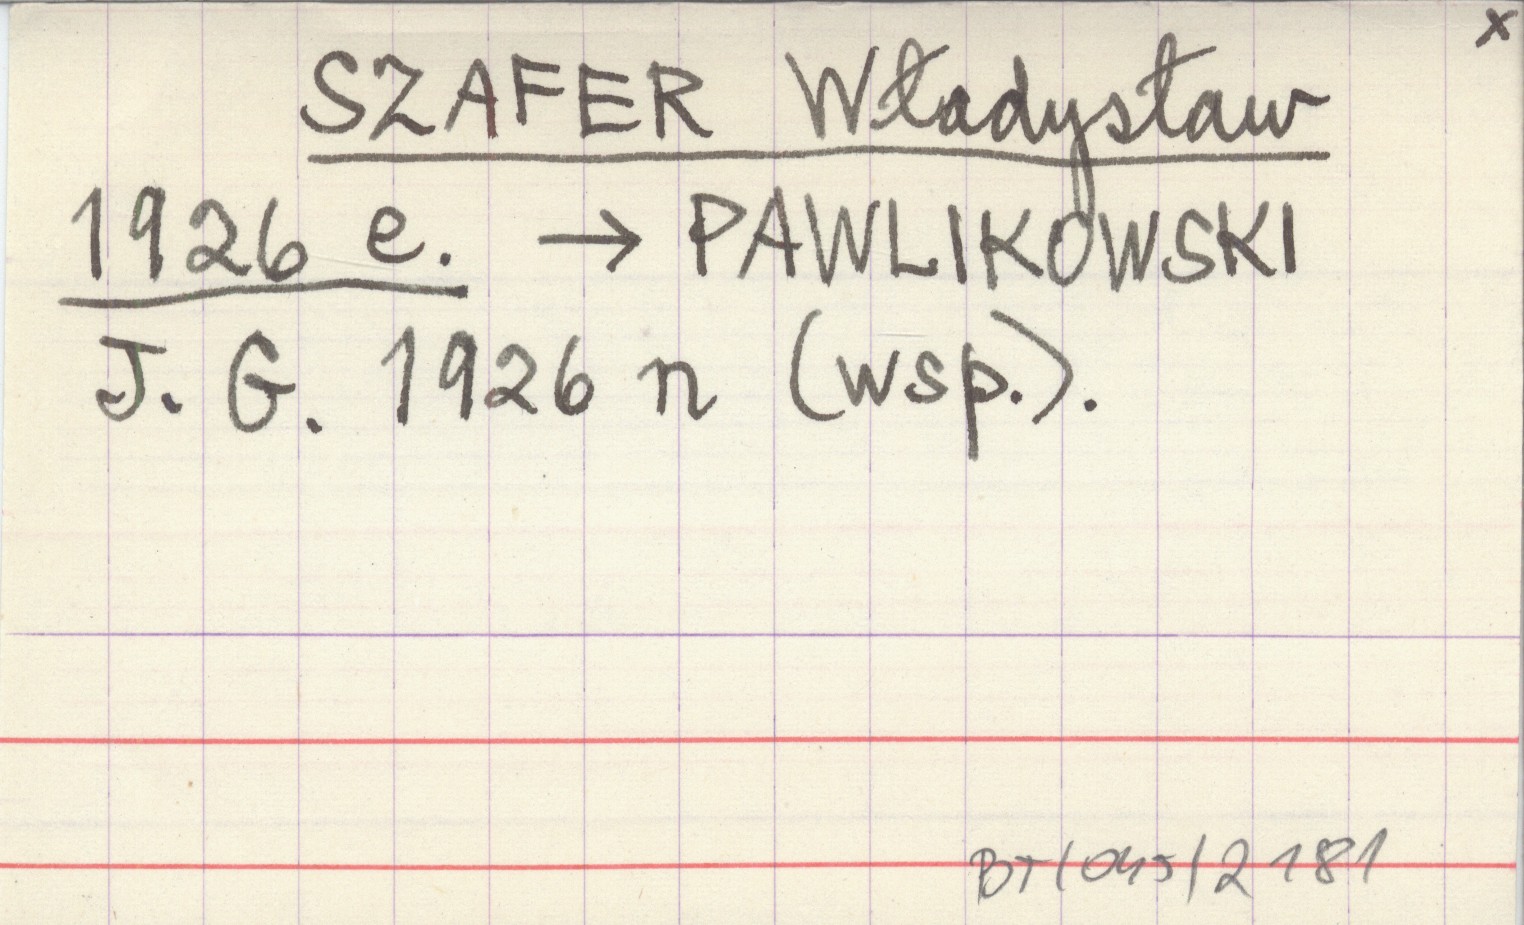 x
SZAFER Władysław
1926 e. → PAWLIKOWSKI
J. G. 1926 n (wsp.).
BT/045/2181